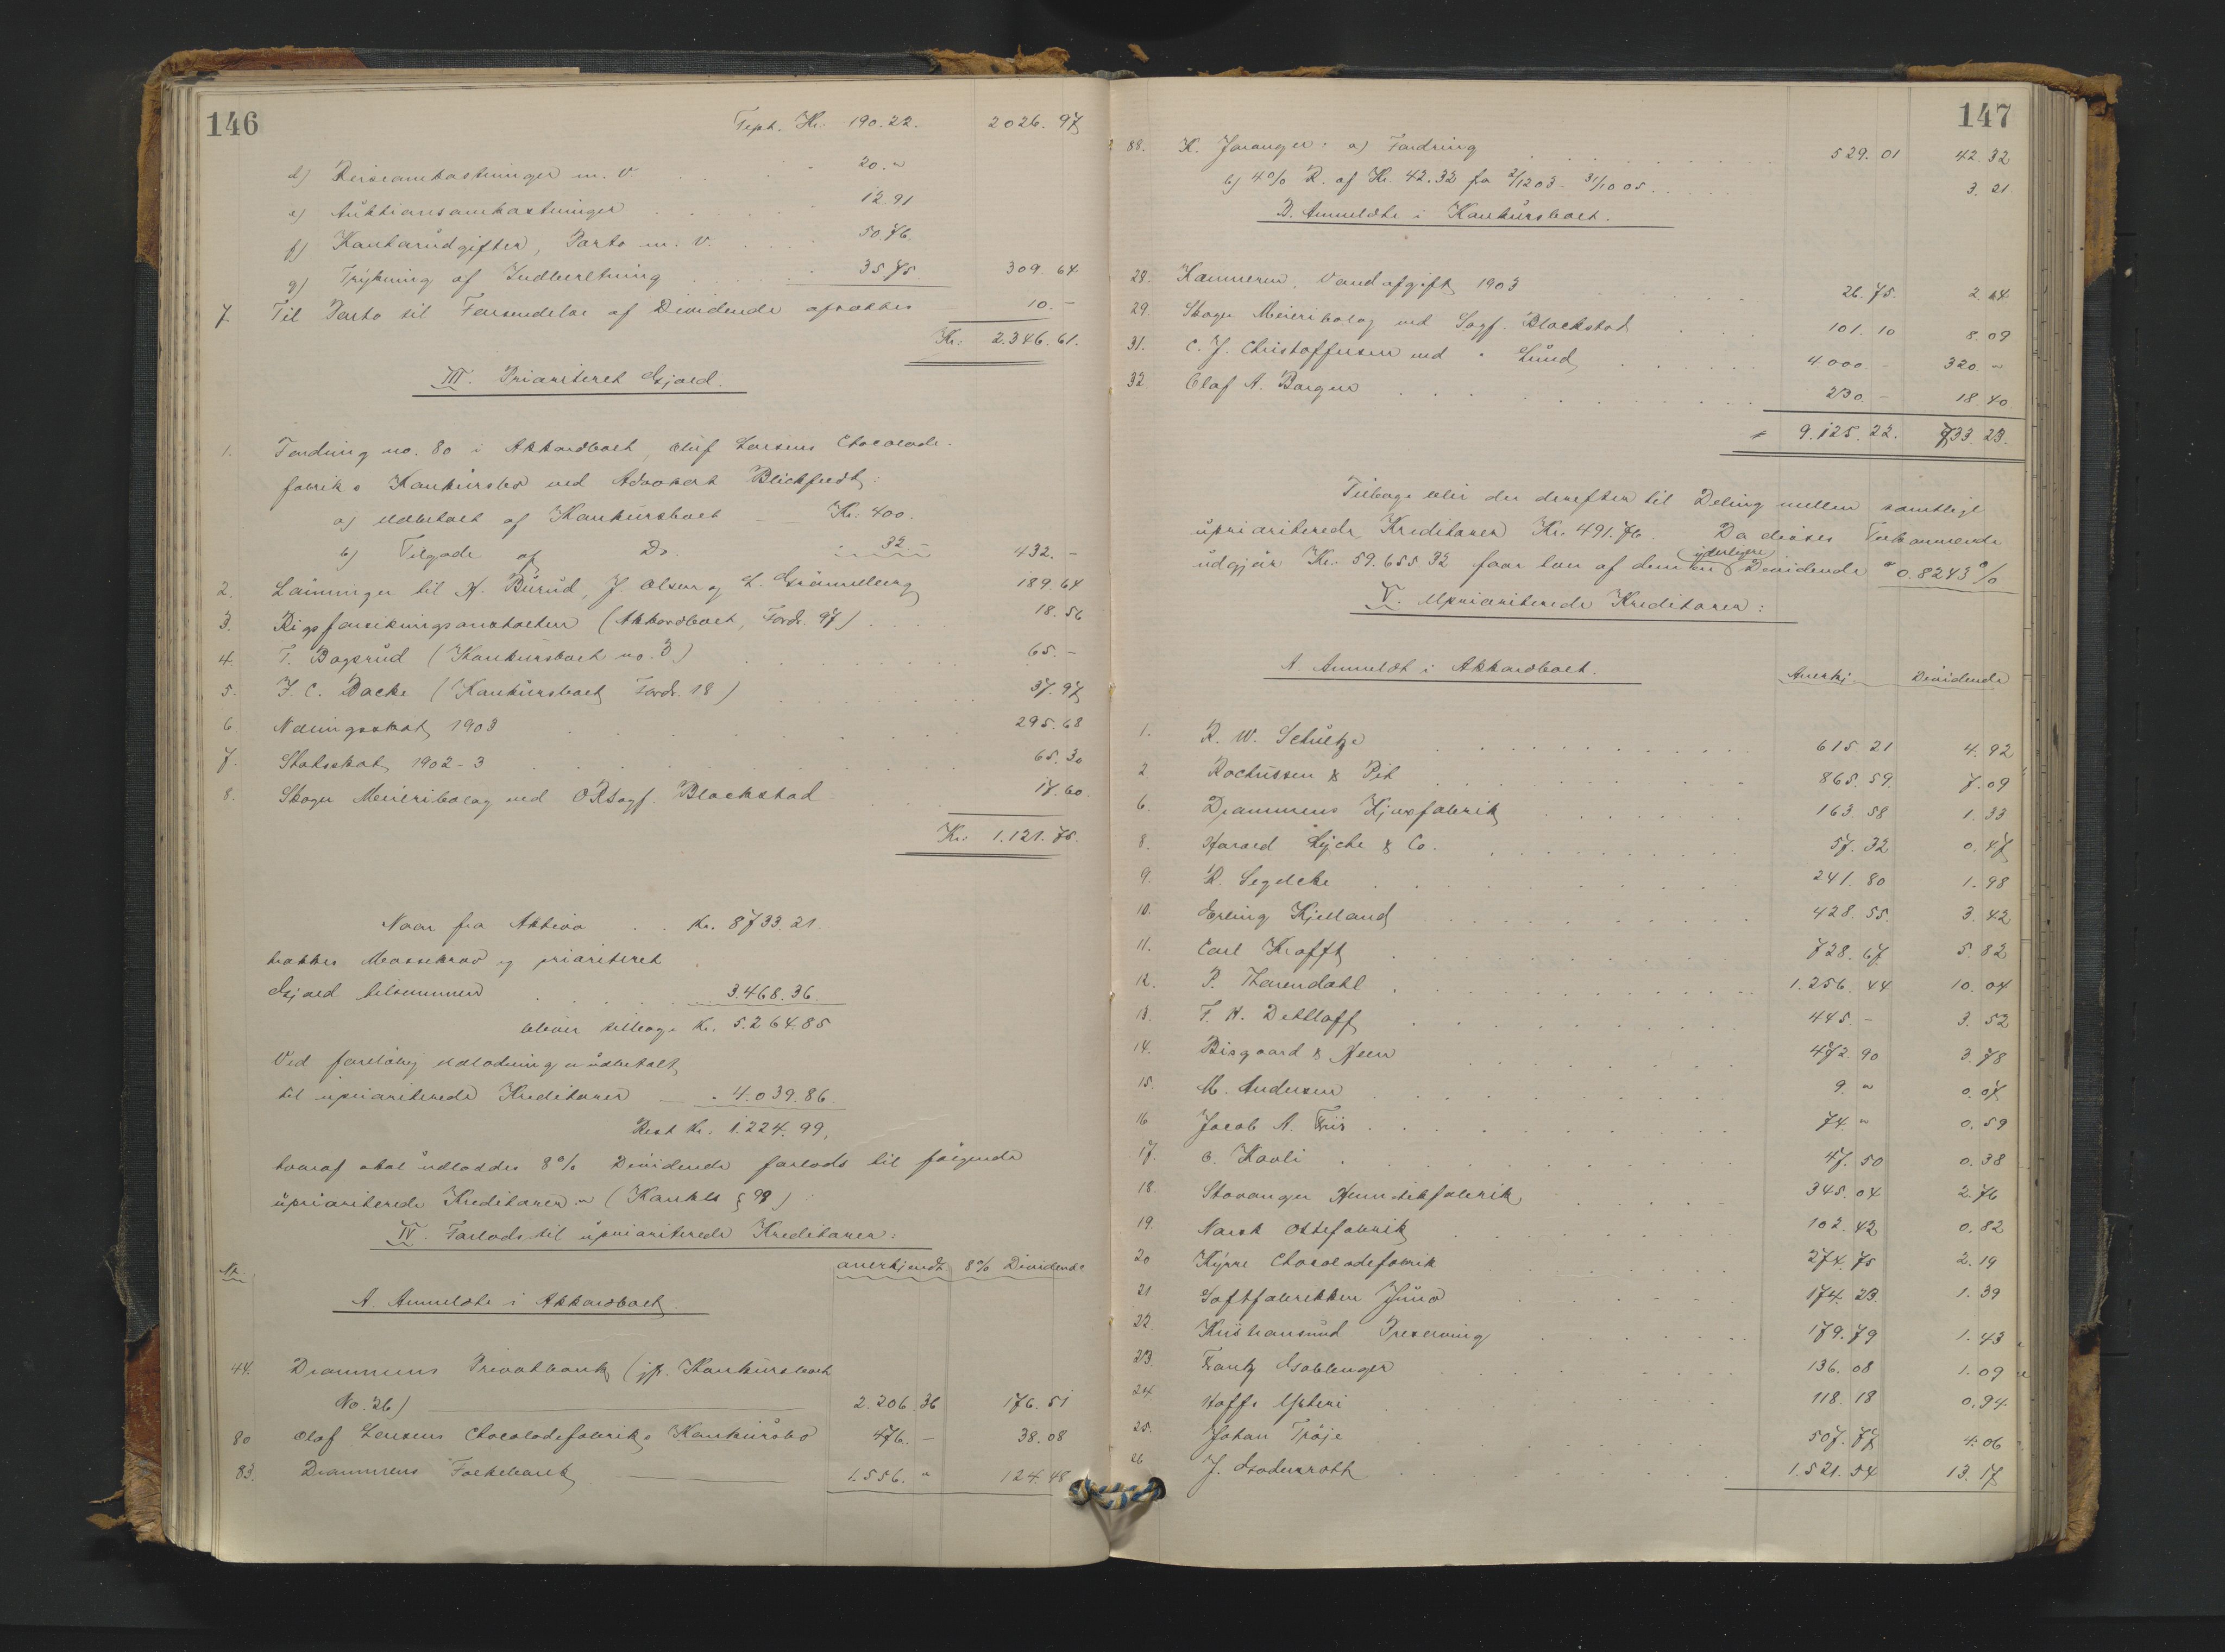 146
Tspt. Kr. 190.22. 2026.97
d) Reiseomkostninger m. v. 20.-
e) Auktionsomkostninger 12.91
f) Kontorudgifter, Porto m. v. 50.76.
g) Trykning af Indberetning 35.75. 309.64
7. Til Porto til Forsendelse af Dividende afsættes 10.-
Kr: 2.346.61.
III. Prioriteret Gjæld.
1. Fordring no. 80 i Akkordboet, Oluf Larsens Chocolade-
fabriks Konkursbo ved Advokat Blickfeldt:
a) Udbetalt af Konkursboet Kr: 400.
b) Tilgode af Do. 32.- 432.-
2. Lønninger til A. Burud, J. Olsen og L. 189.64
3. Rigsforsikringsanstalten (Akkordboet, Fordr. 97) 18.56
4. T. Bagsrud (Konkursboet no. 3) 65.-
5. J. C. Backe (Konkursboet, Fordr. 18) 37.97
6. Næringsskat, 1903 295.68
7. Statsskat, 1902-3 65.30
8. Skoger Meieribolag ved ORsagf. Blackstad 17.60.
Kr: 1.121.75.
Naar fra Aktiva Kr. 8733.21
trækkes Massekrav og prioriteret
Gjæld tilsammen 3.468.36.
bliver tilbage Kr. 5.264.85
Ved foreløbig Udlodning er udbetalt
til uprioriterede Kreditorer 4.039.86.
Rest Kr. 1.224.99,
hvoraf skal udloddes 8% Dividende forlods til følgende
uprioriterede Kreditorer (Konkl. § 98):
IV. Forlods til uprioriterede Kreditorer:
No. anerkjendt 8% Dividende
A. Anmeldte i Akkordboet.
44. Drammens Privatbank (jfr. Konkursboet
No. 26) 2.206.36 176.51
80 Olaf Larsens Chocoladefabriks Konkursbo 476.- 38.08
83. Drammens Folkebank 1.556.- 124.48
147
88. K. Joranger: a) Fordring 529.01 42.32
b) 4% R. af Kr. 42.32 fra 2/12 03 - 31/10 05. 3.21.
B. Anmeldte i Konkursboet.
28. Kæmneren, Vandafgift 1903 26.75. 2.14
29. Skoger Meieribolag ved Sagf. Blackstad 101.10 8.09
31. C. J. Christoffersen ved " Lund 4000.- 320.-
32. Olaf A. Borgen 230.- 18.40
9.125.22. 733.23.
Tilbage blir der derefter til Deling mellem samtlige
uprioriterede Kreditorer Kr. 491.76. Da disses Tilkommende
udgjør Kr. 59.655.32 faar hver af dem en (yderligere) Dividende " 0.8243%
V. Uprioriterede Kreditorer:
A. Anmeldt i Akkordboet. Anerkj. Dividende
1. R. W. Schultze 615.21 4.92
2. Rochussen & Pit 865.59. 7.09
6. Drammens Kjæxfabrik 163.58 1.33
8. Harald Lyche & Co. 57.32 0.47
9. R. Segelcke 241.80 1.98
10. Erling Kjelland 428.55. 3.42
11. Carl Krafft 728.67. 5.82
12. P. Thorendahl 1.256.44 10.04
13. F. H. Dettloff 445.- 3.52
14. Bisgaard & Heen 472.90 3.78
15. M. Andersen 9.- 0.07
16 Jacob A. Friis 74.- 0.59
17. O. Kavli 47.50 0.38
18. Stavanger Hermetikfabrik 345.04 2.76
19. Norsk Ostefabrik 102.42 0.82
20 Kyrre Chocoladefabrik 274.75 2.19
21 Saftfabrikken Juno 174.23. 1.39
22. Kristiansund Preserving 179.79 1.43
23. Frantz 136.08 1.09
24. 118.18 0.94
25. Johan Trøje 507.77 4.06
26 J. 1.521.54 13.17